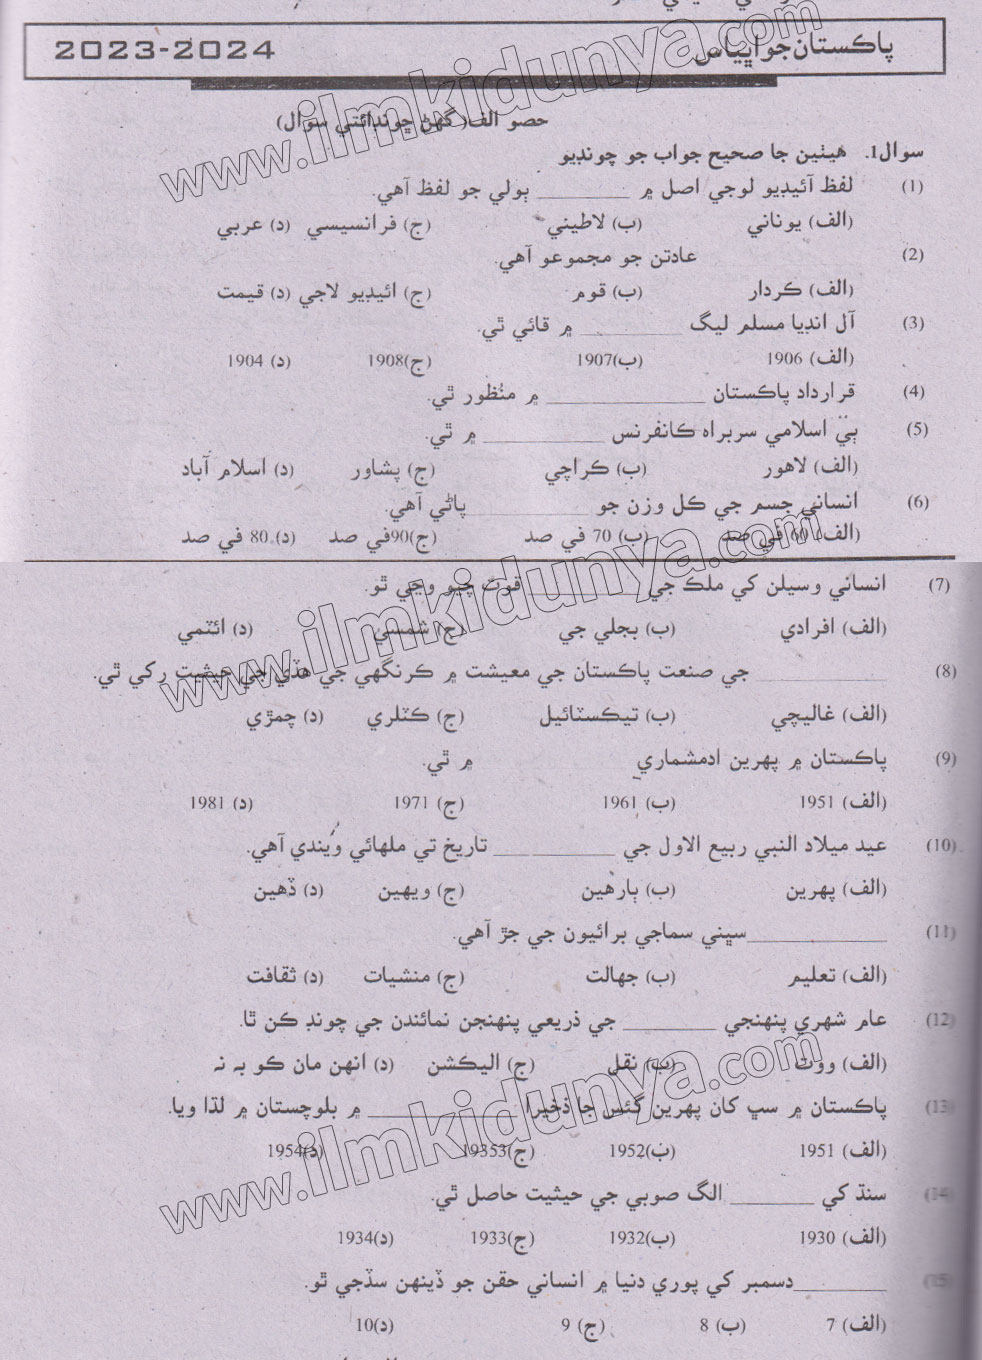 پاڪستان جو اڀياس 2023-2024
حصو الف( گهڻ چونڊائتي سوال)
سوال1. هيٺين جا صحيح جواب جو چونڊيو
(1) لفظ آئيڊيو لوجي اصل ۾ ________ ٻولي جو لفظ آهي.
(الف) يوناني (ب) لاطيني (ج) فرانسيسي (د) عربي
(2) ________ عادتن جو مجموعو آهي.
(الف) ڪردار (ب) قوم (ج) ائيڊيو لاجي (د) قيمت
(3) آل انڊيا مسلم ليگ ________ ۾ قائي ٿي.
(الف) 1906 (ب)1907 (ج)1908 (د) 1904
(4) قرارداد پاڪستان ________ ۾ منظور ٿي.
(5) ٻيٰ اسلامي سربراه ڪانفرنس ________ ۾ ٿي.
(الف) لاهور (ب) ڪراچي (ج) پشاور (د) اسلام آباد
(6) انساني جسم جي ڪل وزن جو ________ پاڻي آهي.
(الف) 60 في صد (ب) 70 في صد (ج)90في صد (د) 80 في صد
(7) انساني وسيلن کي ملڪ جي ________ قوت چيو وڃي ٿو.
(الف) افرادي (ب) بجلي جي (ج) شمسي (د) ائٽمي
(8) ________ جي صنعت پاڪستان جي معيشت ۾ ڪرنگهي جي هڏي جي حيثيت رکي ٿي.
(الف) غاليچي (ب) تيڪسٽائيل (ج) ڪٽلري (د) چمڙي
(9) پاڪستان ۾ پهرين ادمشماري ________ ۾ ٿي.
(الف) 1951 (ب) 1961 (ج) 1971 (د) 1981
(10) عيد ميلاد النبي ربيع الاول جي ________ تاريخ تي ملهائي ويندي آهي.
(الف) پهرين (ب) ٻارهين (ج) ويهين (د) ڏهين
(11) ________سڀني سماجي برائيون جي جڙ آهي.
(الف) تعليم (ب) جهالت (ج) منشيات (د) ثقافت
(12) عام شهري پنهنجي ________ جي ذريعي پنهنجن نمائندن جي چونڊ ڪن ٿا.
(الف) ووٽ (ب) نقل (ج) اليڪشن (د) انهن مان ڪو به نه
(13) پاڪستان ۾ سڀ کان پهرين گئس جا ذخيرا ________ ۾ بلوچستان ۾ لڌا ويا.
(الف) 1951 (ب)1952 (ج)19353 (د)1954
(14) سنڌ کي ________ الگ صوبي جي حيثيت حاصل ٿي.
(الف) 1930 (ب)1932 (ج)1933 (د)1934
(15) ________دسمبر کي پوري دنيا ۾ انساني حقن جو ڏينهن سڏجي ٿو.
(الف) 7 (ب) 8 (ج) 9 (د)10
www.ilmkidunya.com
www.ilmkidunya.com
www.ilmkidunya.com